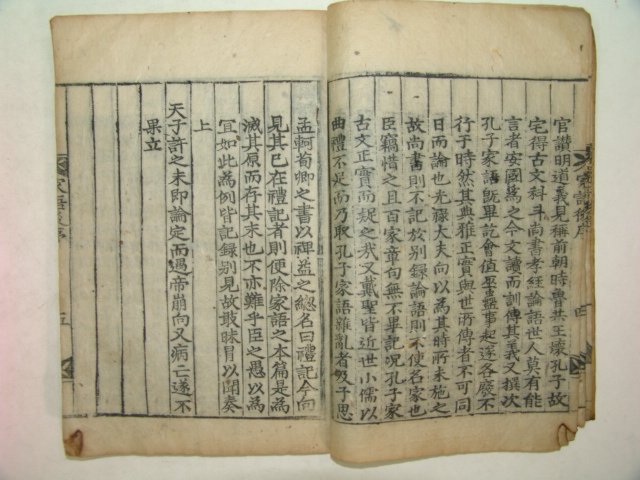 官讚明道義見稱前朝時魯共王壞孔子故
宅得古文科斗尚書孝經論語世人莫有能
言者安國爲之今文讀而訓傳其義又撰次
孔子家語旣畢訖會值巫蠱事起遂各廢不
行于時然其典雅正實與世所傳者不可同
日而論也光祿大夫向以為其時所未施之
故尚書則不記於別録論語則不使名家也
臣竊惜之且百家章句無不畢記况孔子家
古文正實而疑之哉又戴聖皆近世小儒以
曲禮不足而乃取孔子家語雜亂者及子思
孟軻荀卿之書以裨益之緫名曰禮記今向
見其已在禮記者則便除家語之本篇是為
滅其原而存其末也不亦難乎臣之愚以為
冝如此為例皆記録別見故敢昧冒以聞奏
上
天子許之未即論定而遇帝崩向又病亡遂不
果立
家語後序
四
家語後序
五